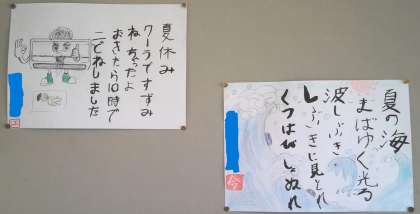 夏休み
クーラですずみ
ねちゃったよ
おきたら10時で
二どねしました
夏の海
まばゆく光る
波しぶき
しぶきに見とれ
くつはびしょぬれ
今